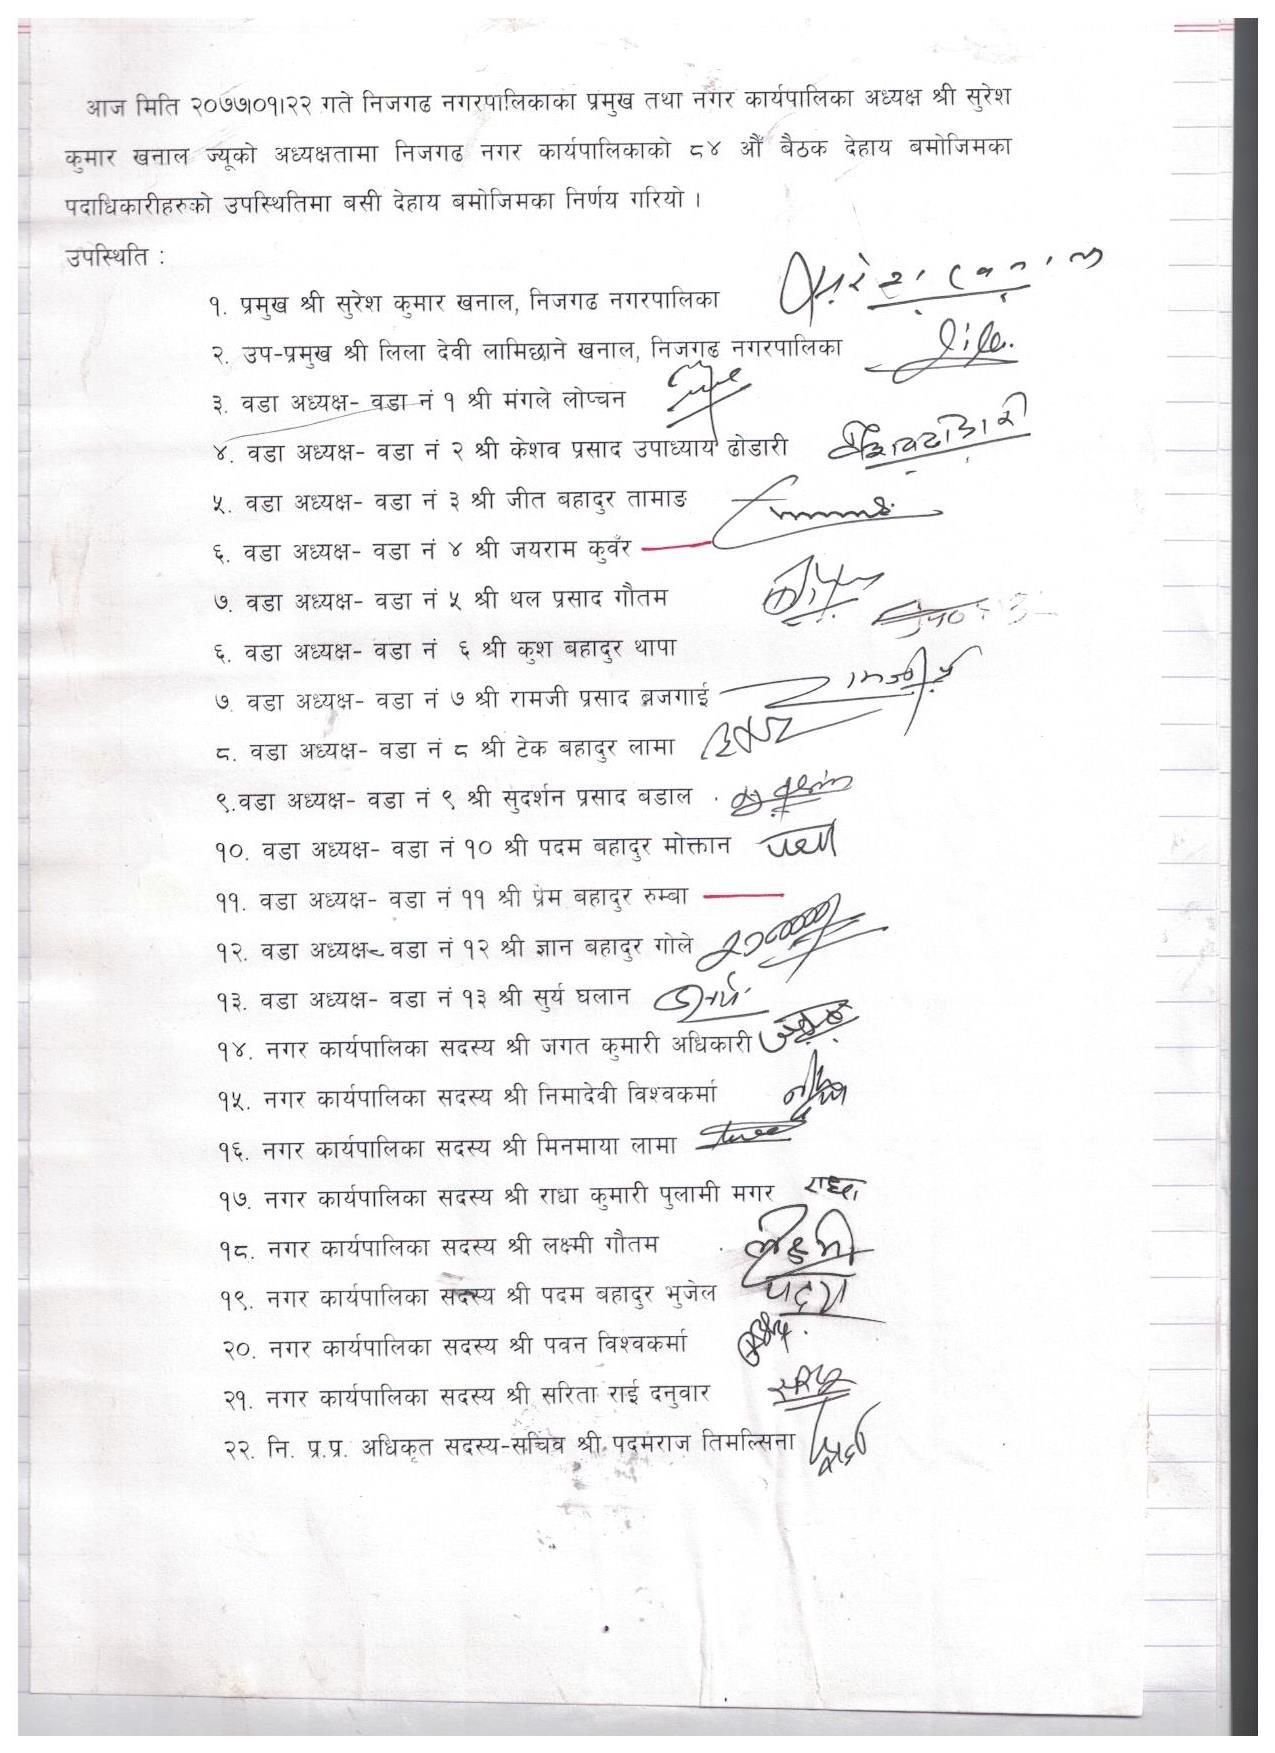 आज मिति २०७७।०१।२२ गते निजगढ नगरपालिकाका प्रमुख तथा नगर कार्यपालिका अध्यक्ष श्री सुरेश
कुमार खनाल ज्यूको अध्यक्षतामा निजगढ नगर कार्यपालिकाको ८४ औं बैठक देहाय बमोजिमका
पदाधिकारीहरुको उपस्थितिमा बसी देहाय बमोजिमका निर्णय गरियो ।
उपस्थिति :
१. प्रमुख श्री सुरेश कुमार खनाल, निजगढ नगरपालिका
२. उप-प्रमुख श्री लिला देवी लामिछाने खनाल, निजगढ नगरपालिका
३. वडा अध्यक्ष- वडा नं १ श्री मंगले लोप्चन
४. वडा अध्यक्ष- वडा नं २ श्री केशव प्रसाद उपाध्याय ढोडारी
५. वडा अध्यक्ष- वडा नं ३ श्री जीत बहादुर तामाङ
६. वडा अध्यक्ष- वडा नं ४ श्री जयराम कुवँर
७. वडा अध्यक्ष- वडा नं ५ श्री थल प्रसाद गौतम
६. वडा अध्यक्ष- वडा नं ६ श्री कुश बहादुर थापा
७. वडा अध्यक्ष- वडा नं ७ श्री रामजी प्रसाद ब्रजगाई
८. वडा अध्यक्ष- वडा नं ८ श्री टेक बहादुर लामा
९.वडा अध्यक्ष- वडा नं ९ श्री सुदर्शन प्रसाद बडाल
१०. वडा अध्यक्ष- वडा नं १० श्री पदम बहादुर मोक्तान
११. वडा अध्यक्ष- वडा नं ११ श्री प्रेम बहादुर रुम्बा
१२. वडा अध्यक्ष- वडा नं १२ श्री ज्ञान बहादुर गोले
१३. वडा अध्यक्ष- वडा नं १३ श्री सुर्य घलान
१४. नगर कार्यपालिका सदस्य श्री जगत कुमारी अधिकारी
१५. नगर कार्यपालिका सदस्य श्री निमादेवी विश्वकर्मा
१६. नगर कार्यपालिका सदस्य श्री मिनमाया लामा
१७. नगर कार्यपालिका सदस्य श्री राधा कुमारी पुलामी मगर राधा
१८. नगर कार्यपालिका सदस्य श्री लक्ष्मी गौतम लक्ष्मी
१९. नगर कार्यपालिका सदस्य श्री पदम बहादुर भुजेल पदम
२०. नगर कार्यपालिका सदस्य श्री पवन विश्वकर्मा
२१. नगर कार्यपालिका सदस्य श्री सरिता राई दनुवार
२२. नि. प्र.प्र. अधिकृत सदस्य-सचिव श्री पदमराज तिमल्सिना